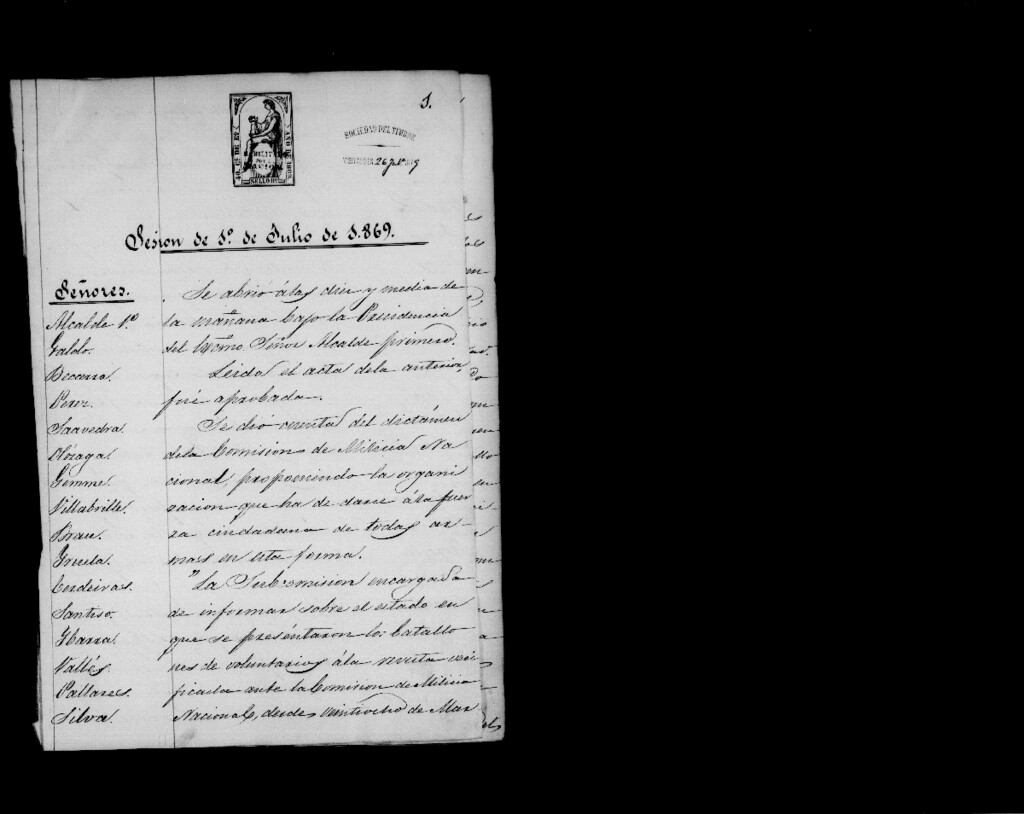 1.
SOCIEDAD DEL TIMBRE
26 Jº
SELLO
Sesion de 1º. de Julio de 1.869.
Señores.
Alcalde 1º
Galdo.
Becerra.
Perez.
Saavedra.
Olózaga.
Gomme.
Villabrille.
Brau.
Cerdeiras.
Santiso.
Ybarra.
Vallés.
Pallares.
Silva.
Se abrió á las diez y media de
la mañana bajo la Presidencia
del Excmo. Señor Alcalde primero.
Leida el acta dela anterior,
fué aprobada.
Se dió cuenta del dictámen
dela Comision de Milicia Na
cional, proponiendo la organi
zacion que ha de darse á la fuer
za ciudadana de todas ar-
mas en esta forma.
"La Subcomision encargada
de informar sobre el estado en
que se presentaron los batallo
nes de voluntarios á la revista veri
ficada ante la Comision de Milicia
Nacional, desde veintiocho de Mar